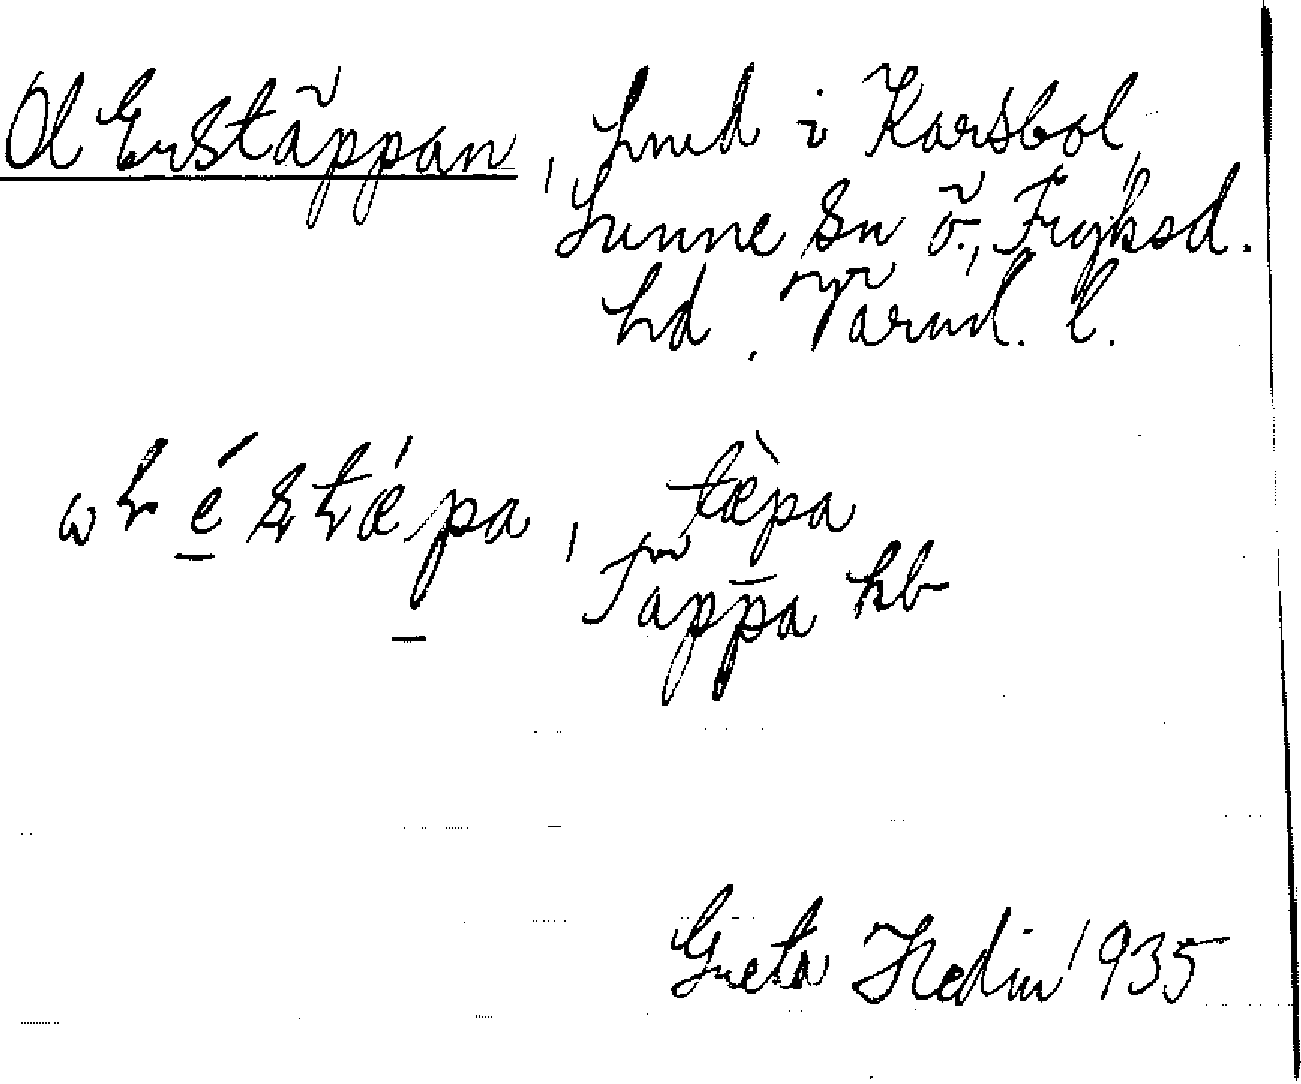 Ol Erstäppan, hmd i Karsbol,
Sunne sn ö., Fryksd.
hd. Värml. l.
täpa
Täppa hb
Greta Hedin 1935